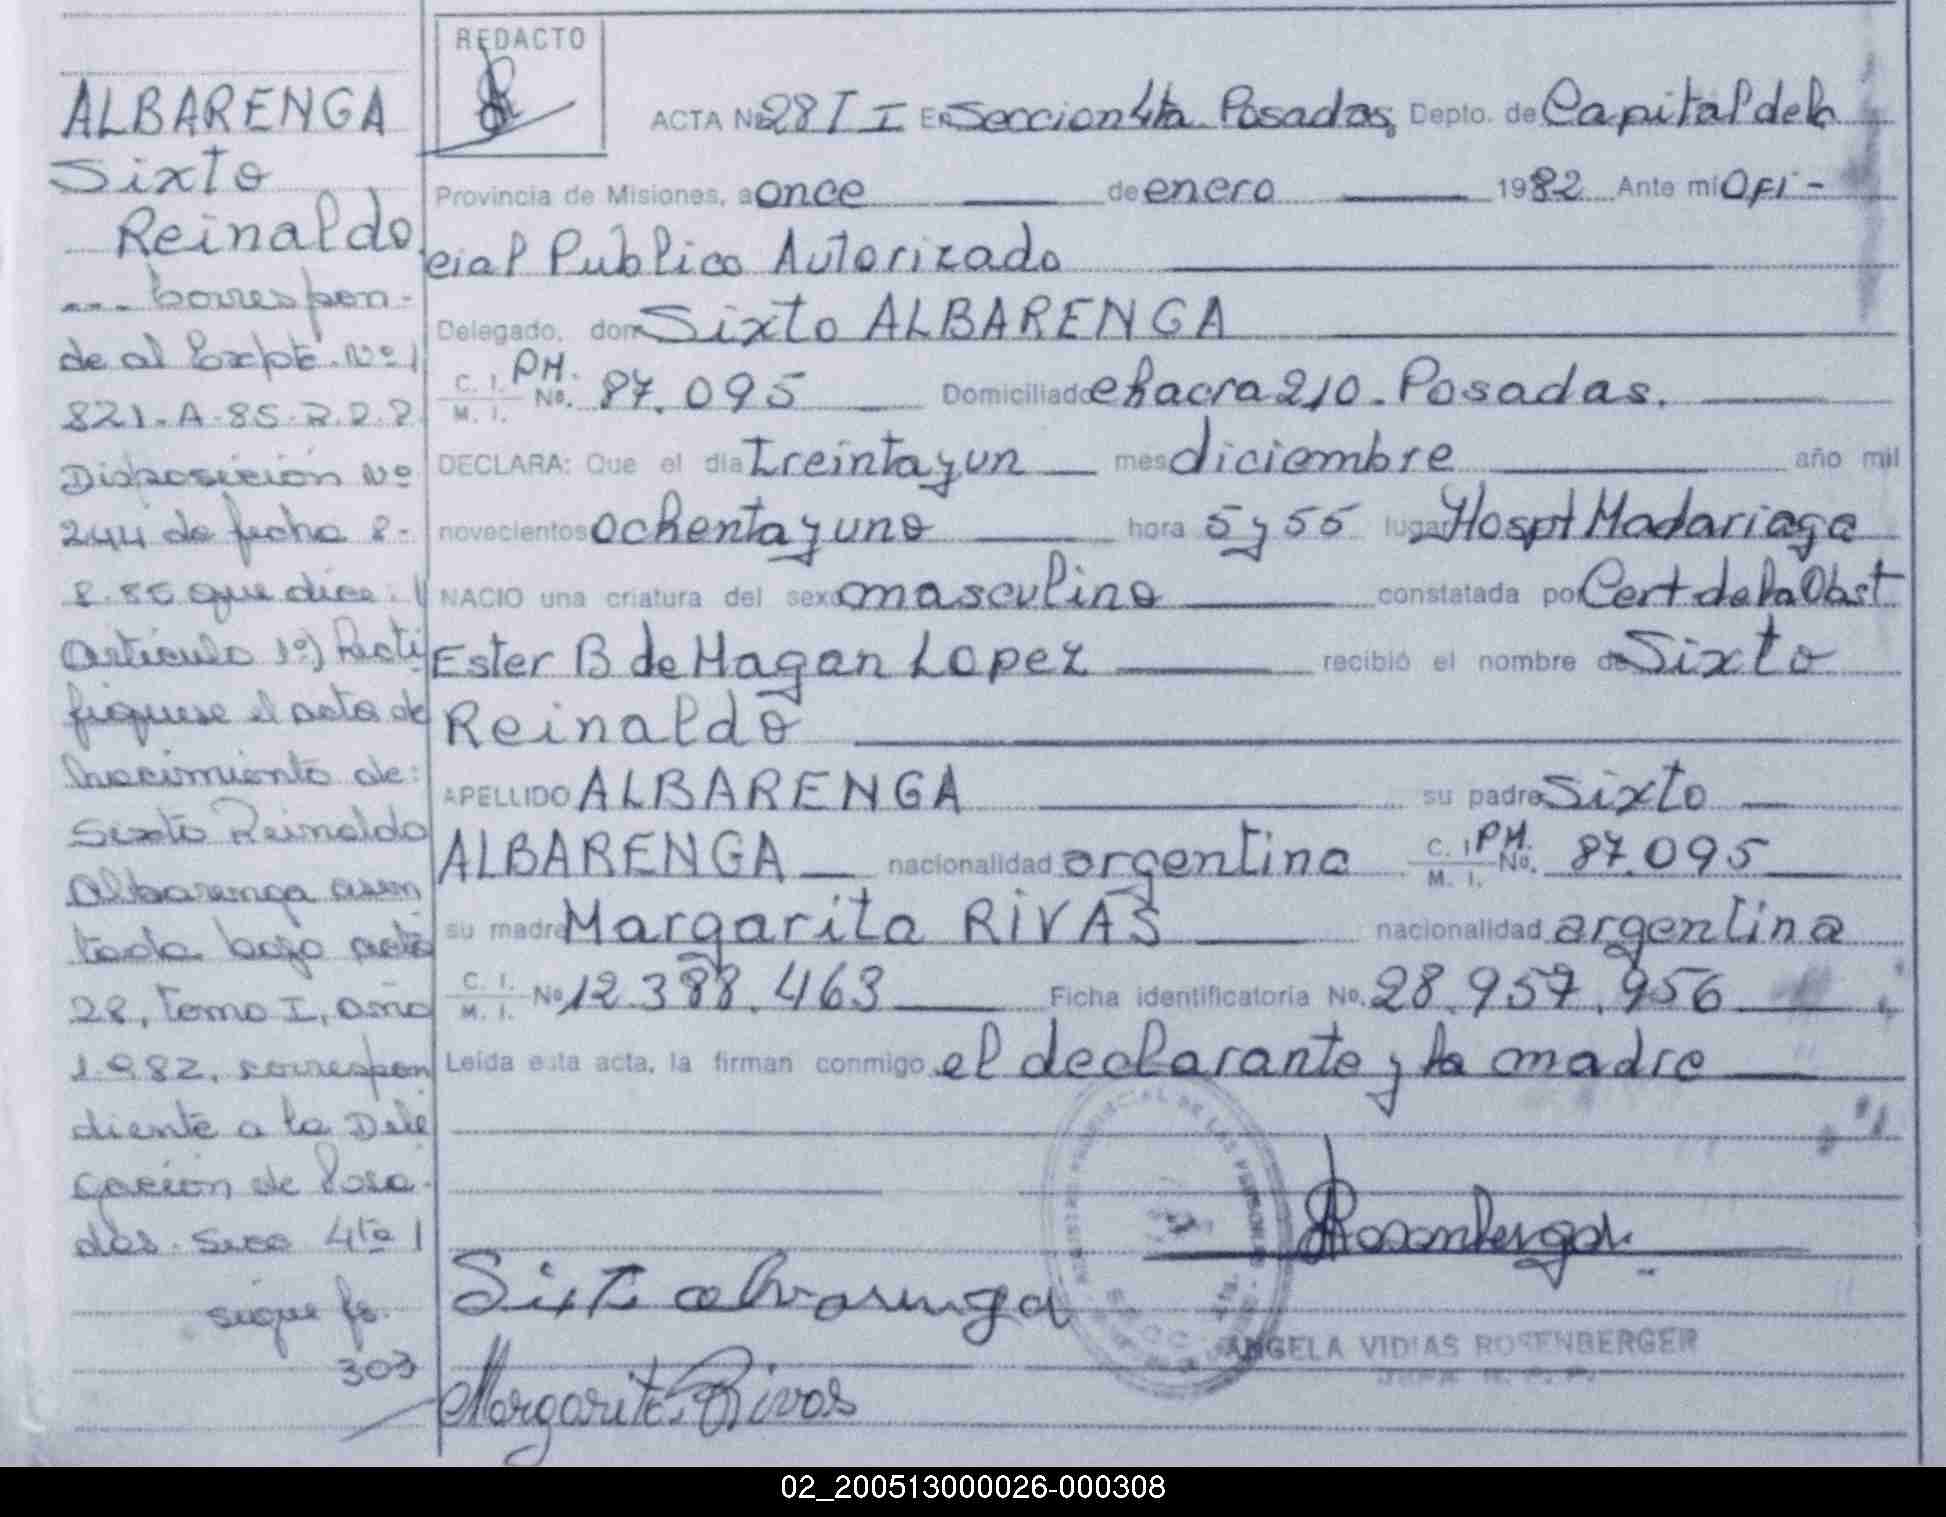 ALBARENGA
Sixto
Reinaldo
--- Correspon-
de al Expte. Nº
821-A-85-R.P.P.
Disposición Nº
244 de fecha 8-
8-85 que dice:
Artículo 1º) Recti
fíquese el acta de
nacimiento de:
Sixto Reinaldo
Albarenga asen
tada bajo acta
28, Tomo I, año
1982, correspon
diente a la Dele
gación de Posa-
das. Secc 4ta
sigue fo.
303
REDACTO
ACTA Nº 28 T I En Seccion 4ta Posadas, Depto. de Capital de la
Provincia de Misiones, a once de enero 1982 Ante mi Ofi-
cial Publico Autorizado
Delegado, don Sixto ALBARENGA
C. I. M. I. PM. No. 87.095 Domiciliado chacra 210 - Posadas.
DECLARA: Que el día treinta y un mes diciembre año mil
novecientos ochenta y uno hora 5 y 55 lugar Hospt Madariaga
NACIO una criatura del sexo masculino constatada por Cert de la Obst
Ester B de Magan Lopez recibió el nombre de Sixto
Reinaldo
APELLIDO ALBARENGA su padre Sixto
ALBARENGA nacionalidad argentina C. I. M. I. PM. No. 87.095
su madre Margarita RIVAS nacionalidad argentina
C. I. M. I. No 12.388.463 Ficha identificatoria No. 28.957.956
Leída esta acta, la firman conmigo el declarante y la madre
Rosenberger
Sixto alvarenga
ANGELA VIDIAS ROSENBERGER
JEFA R. P. P.
Margarita Rivas
02_200513000026-000308